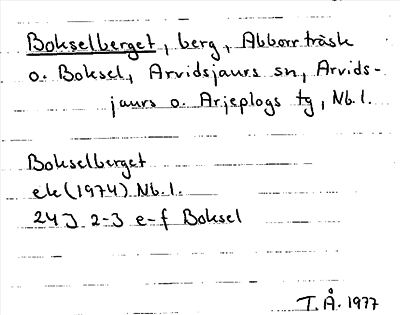 Bokselberget, berg, Abborrträsk
o. Boksel, Arvidsjaurs sn, Arvids-
jaurs o. Arjeplogs tg, Nb. l.
Bokselberget
ek (1974) Nb. l.
24J 2-3 e-f Boksel
T.Å. 1977